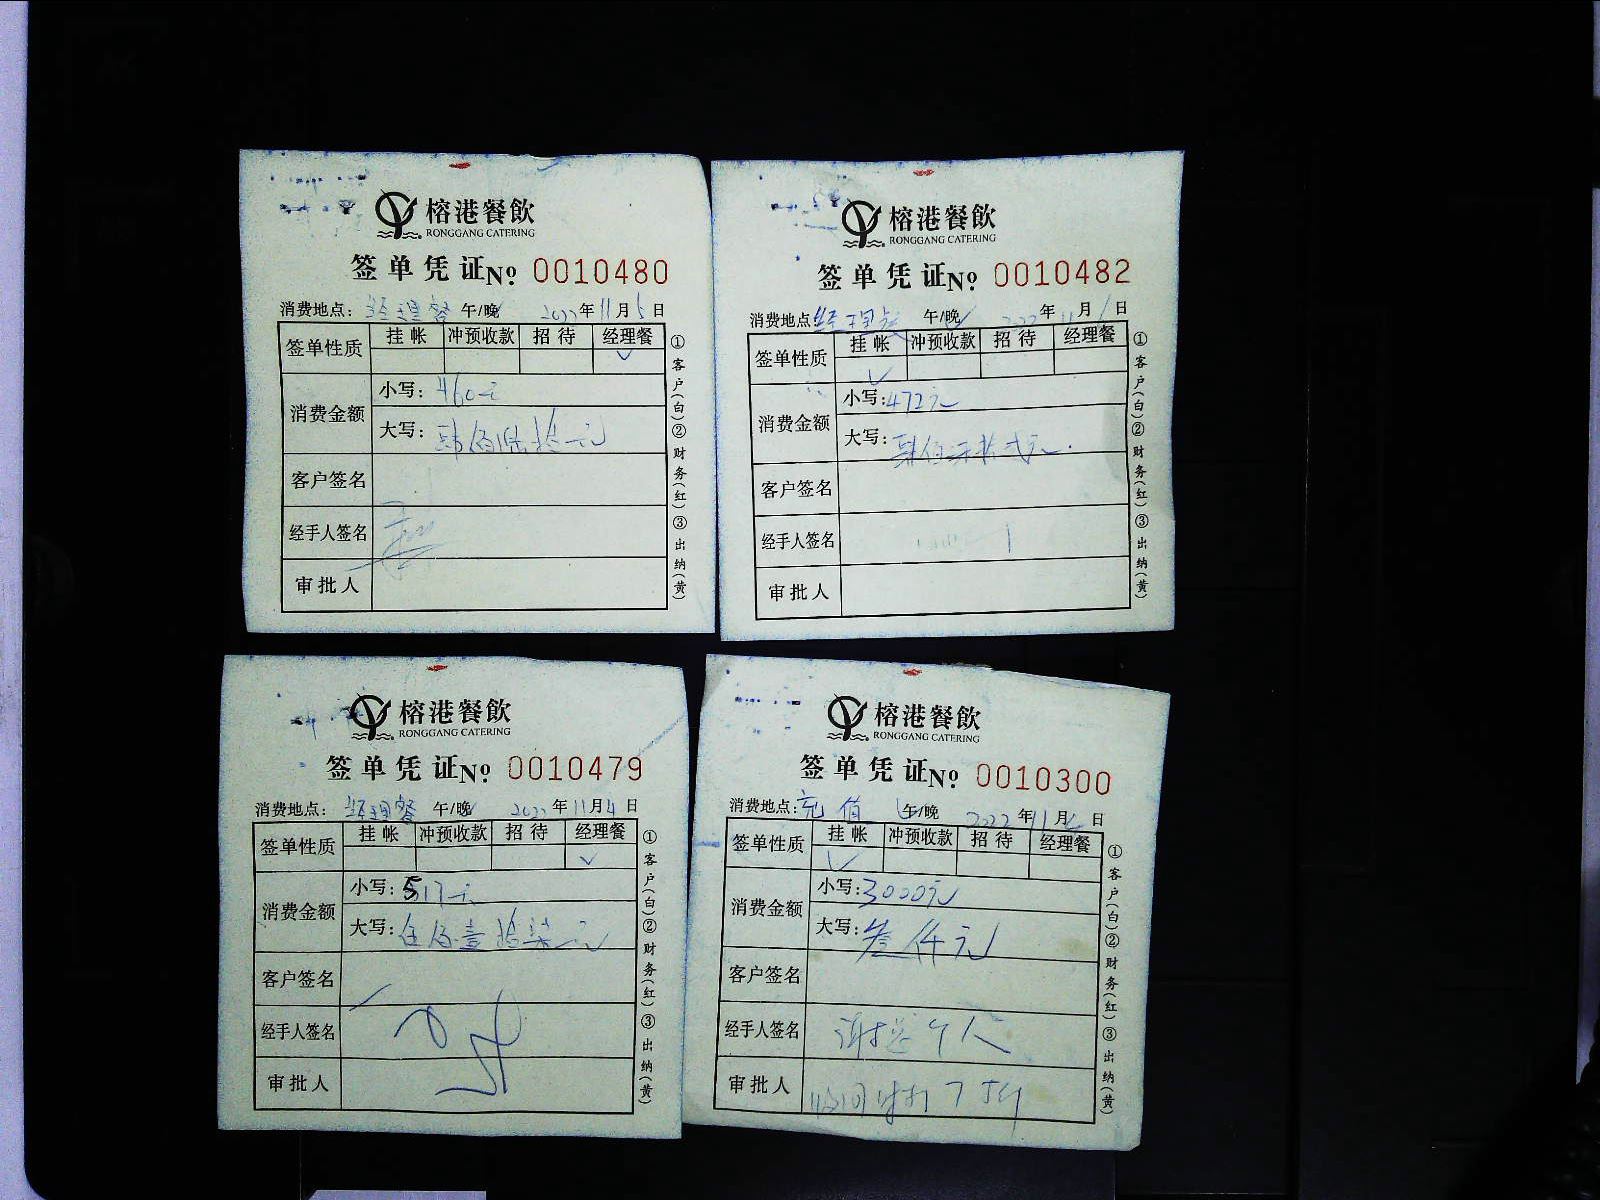 榕港餐飲
RONGGANG CATERING
签单凭证 No 0010480
消费地点: 经理餐 午/晚 2022年11月5日
签单性质 挂帐 冲预收款 招待 经理餐
✓
消费金额 小写: 460元
大写: 肆佰陆拾元
客户签名
经手人签名
审批人
①客户(白)②财务(红)③出纳(黄)
榕港餐飲
RONGGANG CATERING
签单凭证 No 0010482
消费地点: 经理餐 午/晚 2022年11月 日
签单性质 挂帐 冲预收款 招待 经理餐
✓
消费金额 小写: 472元
大写: 肆佰柒拾贰元
客户签名
经手人签名
审批人
①客户(白)②财务(红)③出纳(黄)
榕港餐飲
RONGGANG CATERING
签单凭证 No 0010479
消费地点: 经理餐 午/晚 2022年11月4日
签单性质 挂帐 冲预收款 招待 经理餐
✓
消费金额 小写: 517元
大写: 伍佰壹拾柒元
客户签名
经手人签名
审批人
①客户(白)②财务(红)③出纳(黄)
榕港餐飲
RONGGANG CATERING
签单凭证 No 0010300
消费地点: 充值 午/晚 2022年11月 日
签单性质 挂帐 冲预收款 招待 经理餐
✓
消费金额 小写: 3000元
大写: 叁仟元
客户签名
经手人签名 谢总个人
审批人
①客户(白)②财务(红)③出纳(黄)